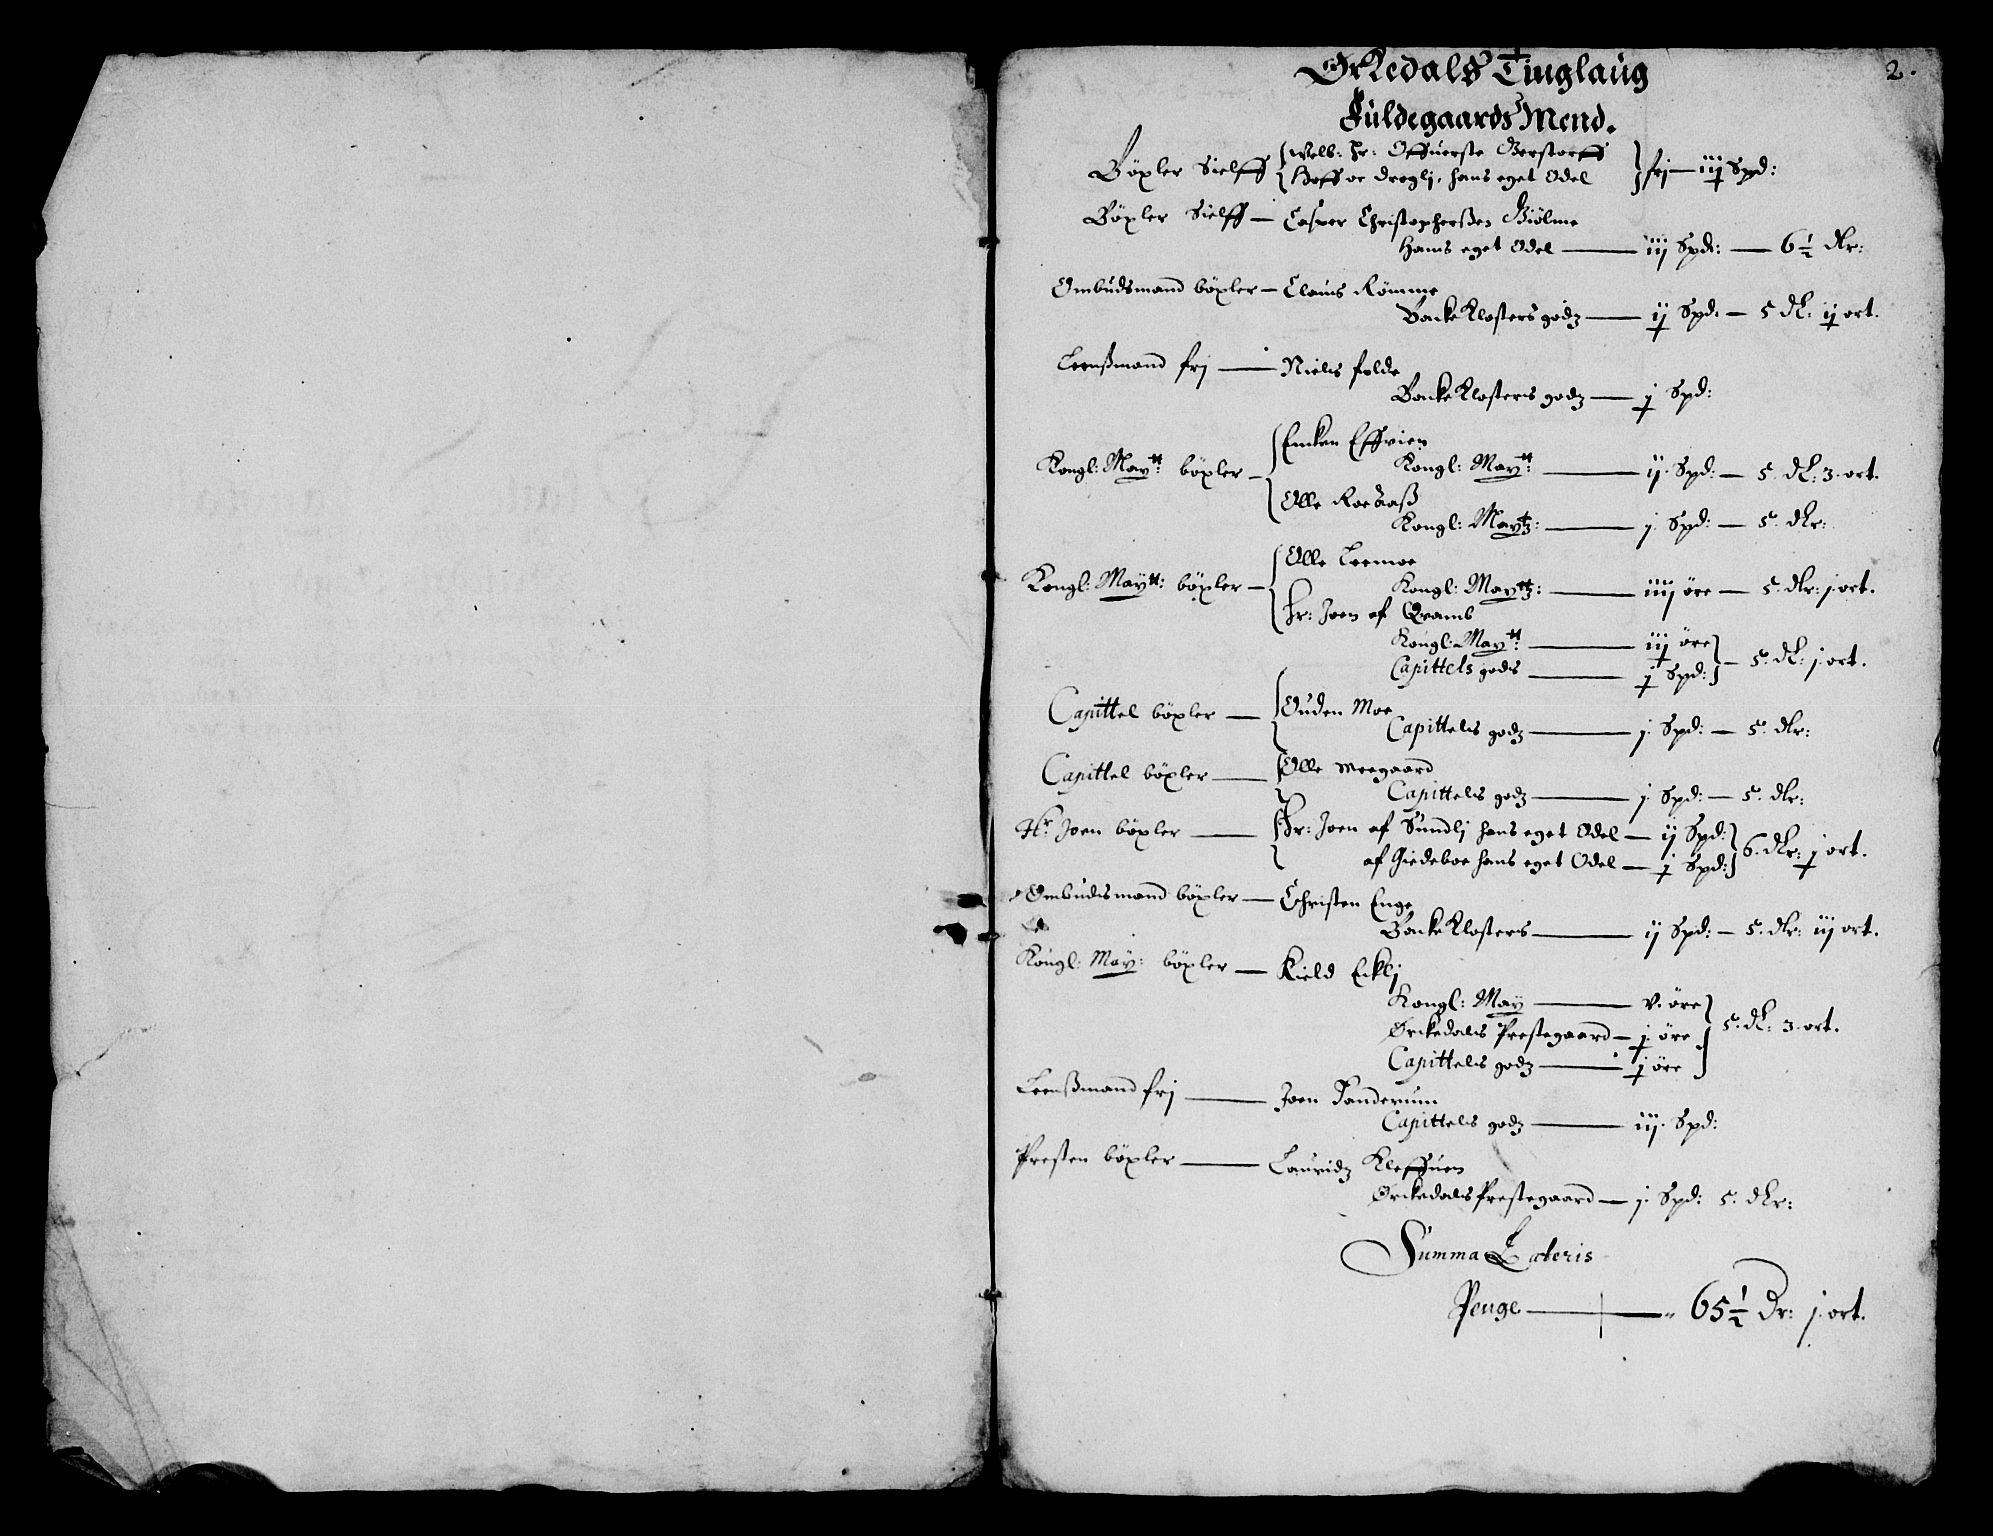 2.
Ørkedals Tinglaug
Fuldegaards Mend.
Böxler Sielff {Welb: Hr: Offuerste Berstorff
Hoff oc dreglj, hans eget Odel} frj — iij Spd:
Böxler Sielff — Casper Christopherßen Biölme
Hans eget Odel — iij Spd: — 6½ dlr:
Ombudsmand böxler — Claus Römme
Backe Klosters godz — ij Spd: — 5 dl: ij ort.
Leenßmand frj — Niels folde
Backe Klosters godz — j Spd:
Kongl: Maytt: böxler — {Encken Effuien
Kongl: Maytt: — ij. Spd: — 5. dl: 3. ort.
Olle Roeaaß
Kongl: Maytz: — j. Spd: — 5. dlr:
Kongl: Maytt: böxler — {Olle Leemoe
Kongl: Maytz: — iiij öre — 5. dlr: j. ort.
Hr: Joen af Qvamb
Kongl: Maytt: — iij öre
Capittels gods — j Spd:} — 5. dl: j. ort.
Capittel böxler — {Ouden Moe
Capittels godz — j. Spd: — 5. dlr:
Capittel böxler — {Olle Meegaard
Capittels godz — j. Spd: — 5. dlr:
Hr. Joen böxler — {Hr: Joen af Sundlj hans eget Odel — ij Spd:
af Giedeboe hans eget Odel — j Spd:} 6. dlr: j ort.
Ombudsmand böxler — Christen Enge
Backe Klosters — ij Spd: — 5. dlr: iij ort.
Kongl: May: böxler — Kield Ecklj
Kongl: May — v. öre
Örckedals Prestegaard — j. öre
Capittels godz — j öre} 5. dl: 3. ort.
Leenßmand frj — Joen Vanderum
Capittels godz — iij. Spd:
Presten böxler — Lauridz Kleffuen
Örckedals Prestegaard — j. Spd: 5. dlr:
Summa Lateris
Penge — 65½ Dr: j. ort.